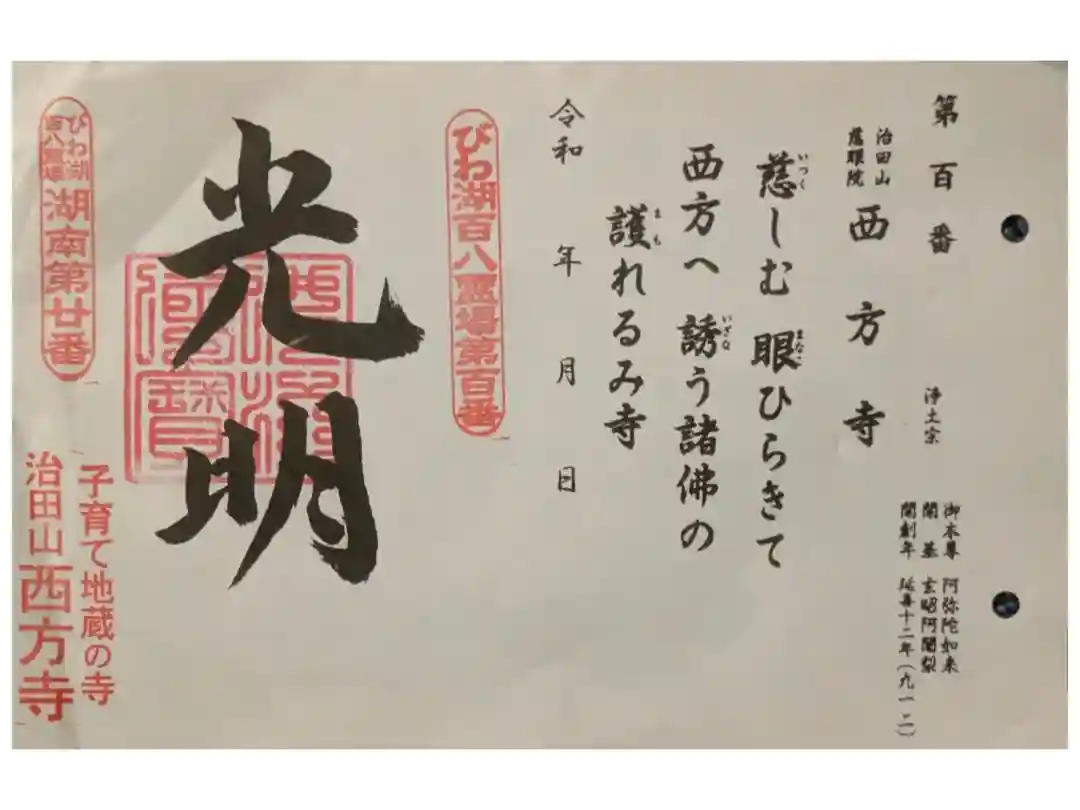 第百番
浄土宗
御本尊 阿弥陀如来
開基 玄昭阿闍梨
開創年 延喜十二年(九一二)
治田山
慈眼院
西方寺
慈しむ 眼ひらきて
いつく
まなこ
西方へ 誘う諸佛の
いざな
護れるみ寺
まも
令和 年 月 日
びわ湖百八霊場第百番
光明
子育て地蔵の寺
治田山 西方寺
びわ湖
百八霊場
湖南第廿番